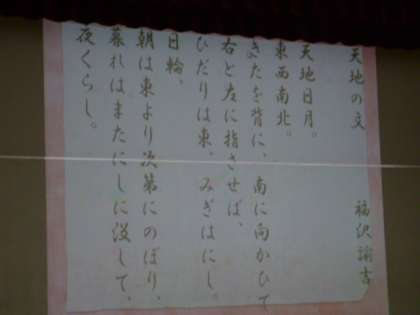 天地の文
福沢諭吉
天地日月。
東西南北。
きたを背に、南に向かひて
右と左に指させば、
ひだりは東、みぎはにし。
日輪、
朝は東より次第にのぼり、
暮れはまたにしに没して、
夜くらし。